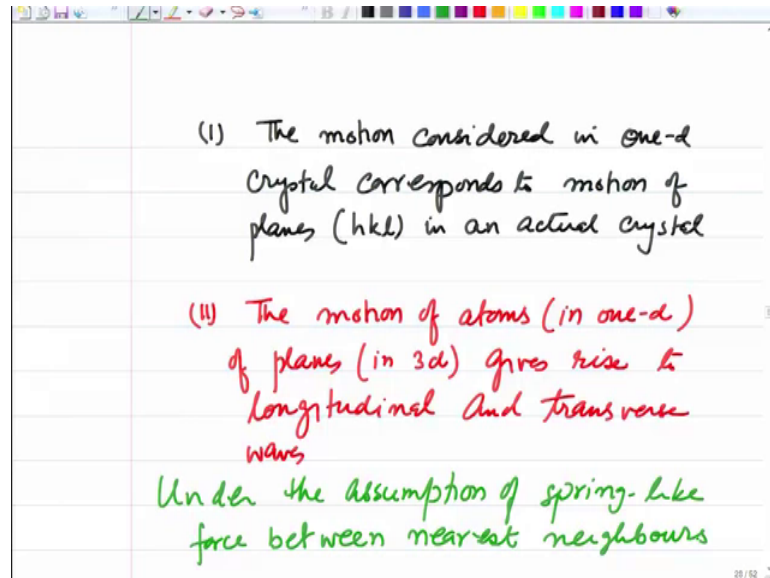 (I) The motion considered in one-d
crystal corresponds to motion of
planes (hkl) in an actual crystal
(II) The motion of atoms (in one-d)
of planes (in 3d) gives rise to
longitudinal and transverse
waves
Under the assumption of spring-like
force between nearest neighbours
25/52